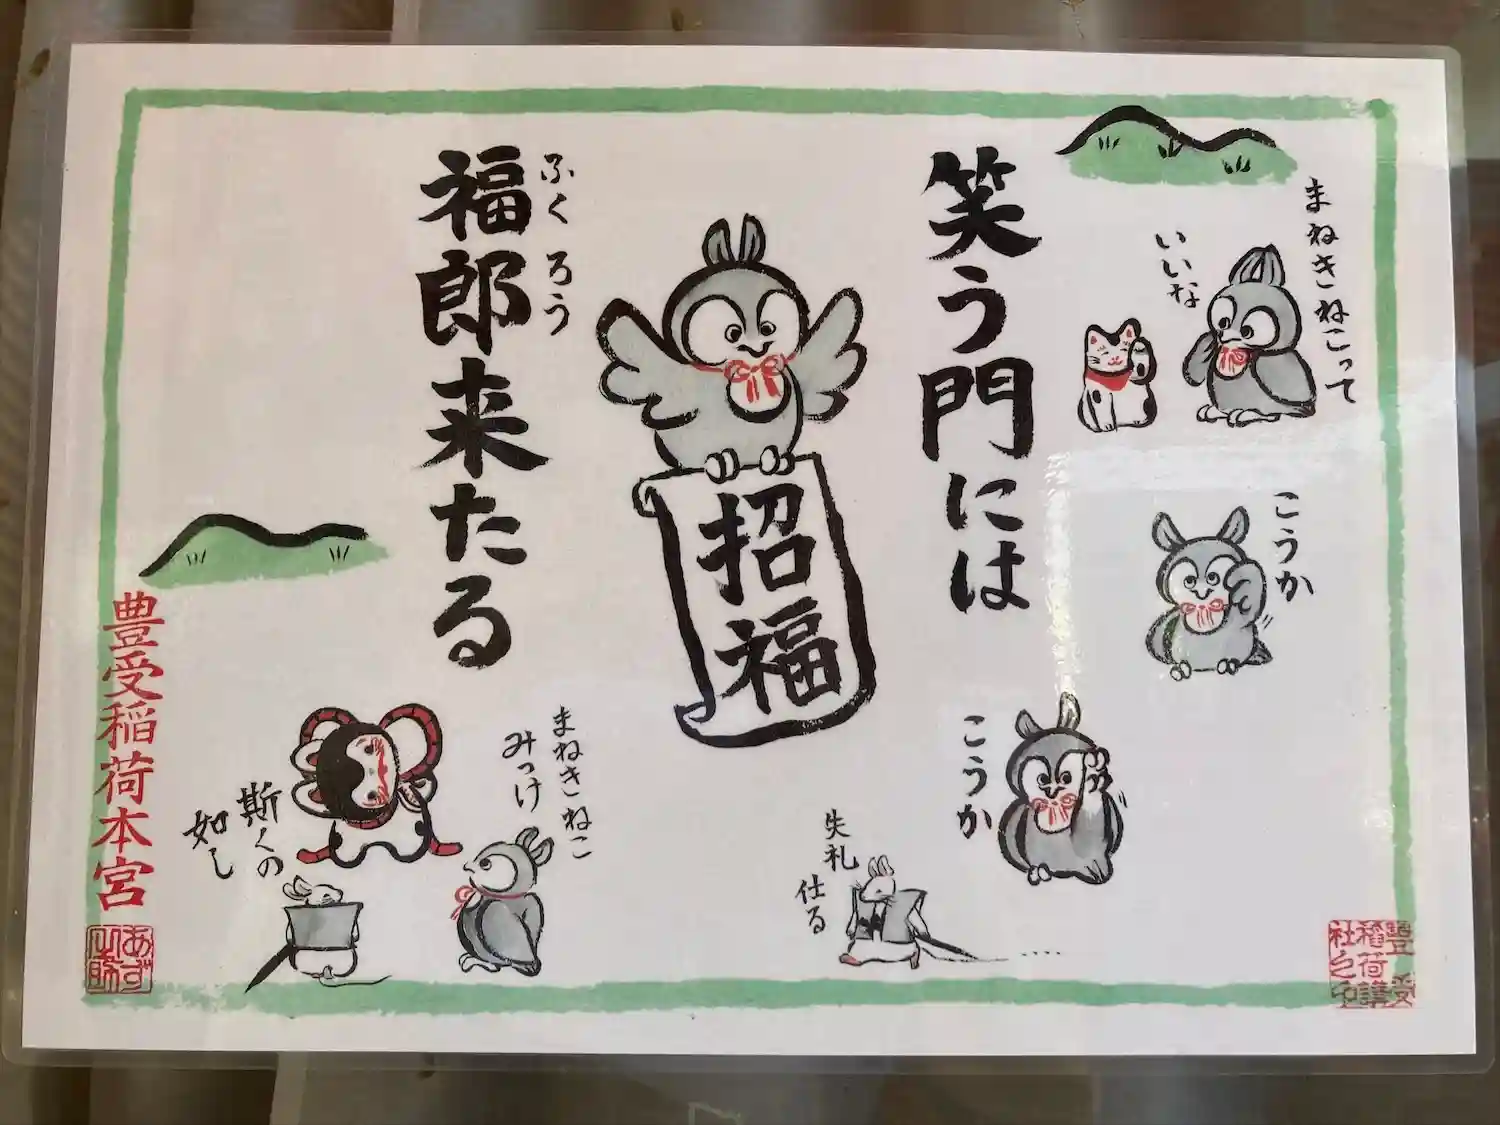 笑う門には
福郎来たる
ふくろう
招福
まねきねこって
いいな
こうか
こうか
失礼
仕る
まねきねこ
みっけ
斯くの
如し
豊受稲荷本宮
豊受
稲荷講